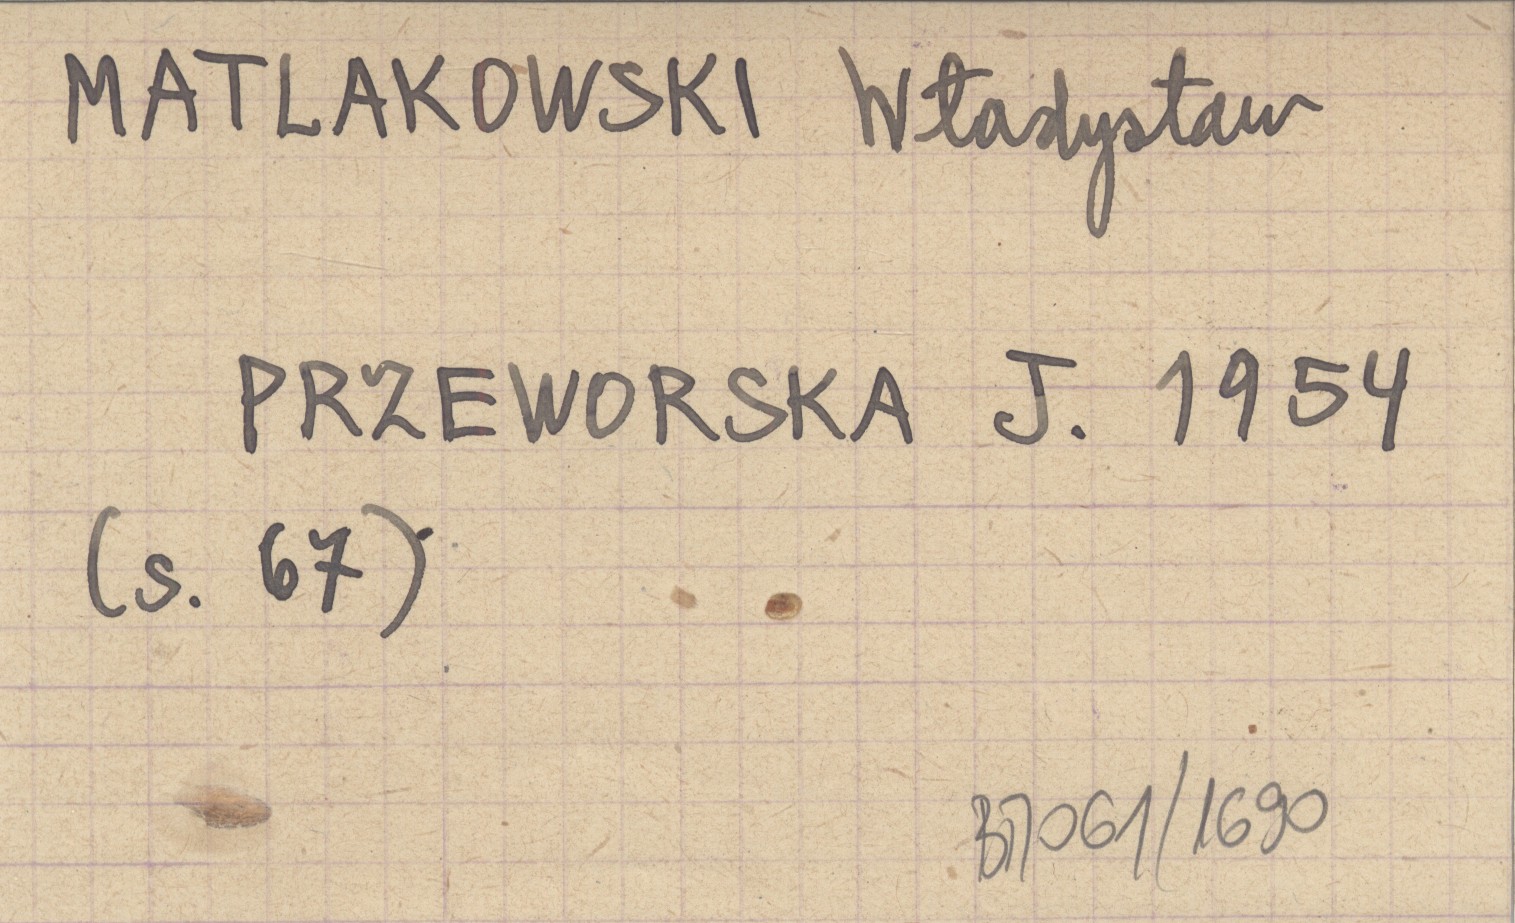 MATLAKOWSKI Władysław
PRZEWORSKA J. 1954
(s. 67)
B7061/1690